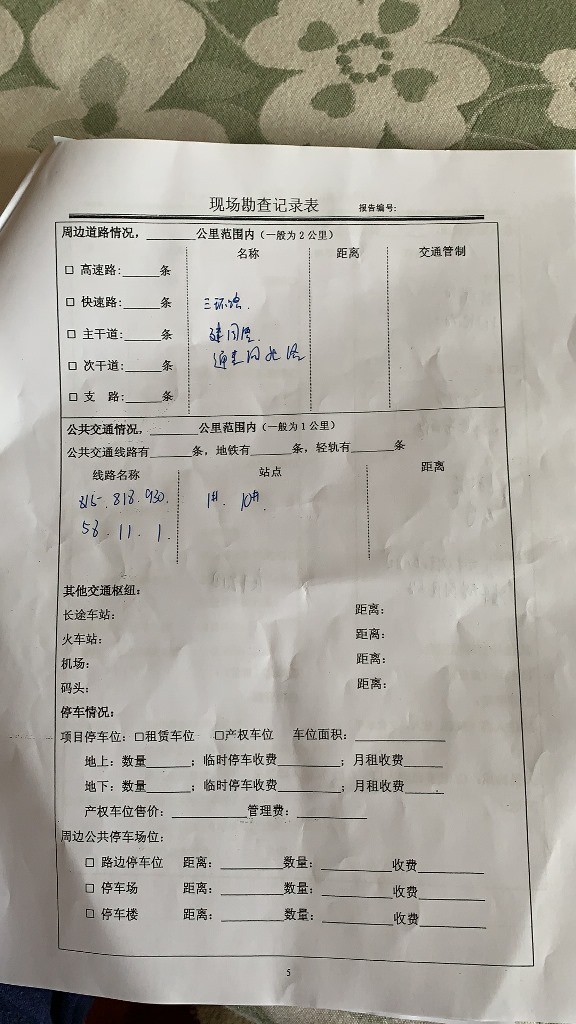 现场勘查记录表 报告编号:
周边道路情况，______公里范围内（一般为2公里）
名称 距离 交通管制
□ 高速路:____条
□ 快速路:____条 三环路.
□ 主干道:____条 建国路.
□ 次干道:____条 通惠河北路
□ 支 路:____条
公共交通情况，______公里范围内（一般为1公里）
公共交通线路有_____条，地铁有_____条，轻轨有_____条
线路名称 站点 距离
815. 818. 930. 1#. 10#.
58. 11. 1.
其他交通枢纽：
长途车站： 距离：
火车站： 距离：
机场： 距离：
码头： 距离：
停车情况：
项目停车位：□租赁车位 □产权车位 车位面积：__________
地上：数量_____；临时停车收费_______；月租收费_____
地下：数量_____；临时停车收费_______；月租收费_____
产权车位售价：________管理费：________
周边公共停车场位：
□ 路边停车位 距离：_______数量：________收费_______
□ 停车场 距离：_______数量：________收费_______
□ 停车楼 距离：_______数量：________收费_______
5